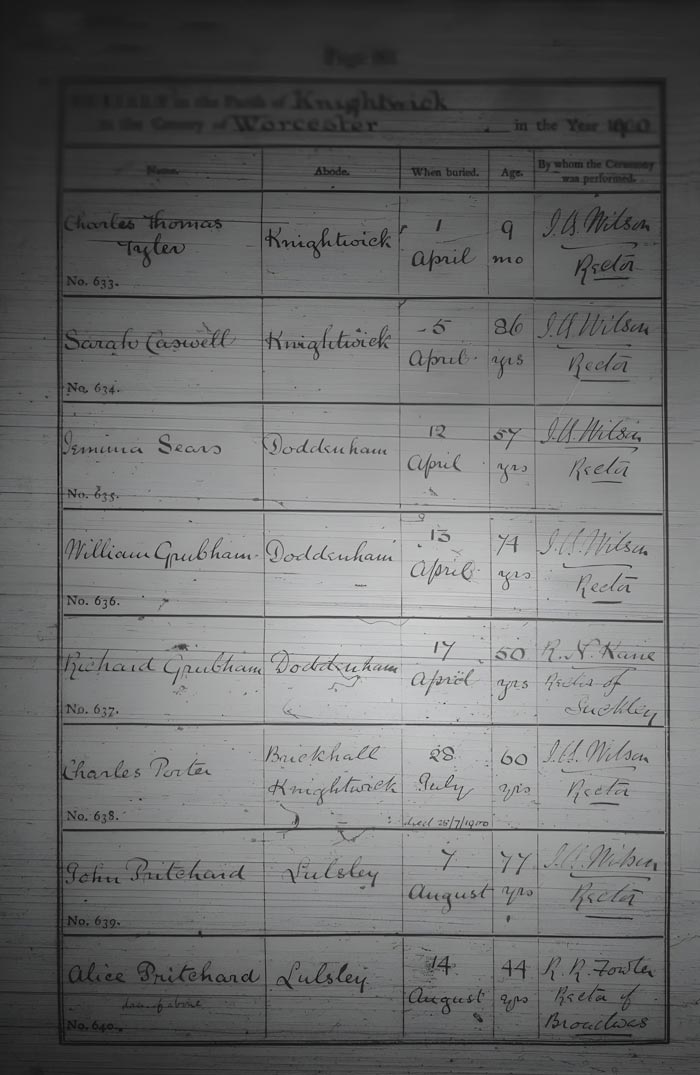 Page
BURIALS in the Parish of Knightwick
in the County of Worcester in the Year 1900
Name. Abode. When buried. Age. By whom the Ceremony was performed.
Charles Thomas Knightwick 1 9 J.B. Wilson
Tyler April mo Rector
No. 633.
Sarah Caswell Knightwick 5 86 J.B. Wilson
April yrs Rector
No. 634.
Jemima Sears Doddenham 12 57 J.B. Wilson
April yrs Rector
No. 635.
William Grubham Doddenham 13 74 J.B. Wilson
April yrs Rector
No. 636.
Richard Grubham Doddenham 17 50 R. N. Kane
April yrs Rector of
No. 637. Suckley
Charles Porter Brickhall 28 60 J.B. Wilson
Knightwick July yrs Rector
No. 638. died 25/7/1900
John Pritchard Lulsley 7 77 J.B. Wilson
August yrs Rector
No. 639.
Alice Pritchard Lulsley 14 44 R. R. Fowler
dau. of above August yrs Rector of
No. 640. Broadwas